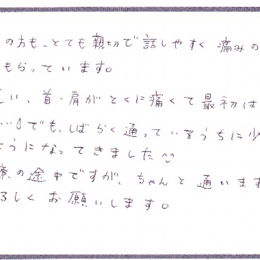 の方も、とても親切で話しやすく痛みの
もらっています。
い、首・肩がとくに痛くて最初は
でも、しばらく通っているうちに少
ようになってきました
療の途中ですが、ちゃんと通います
ろしくお願いします。